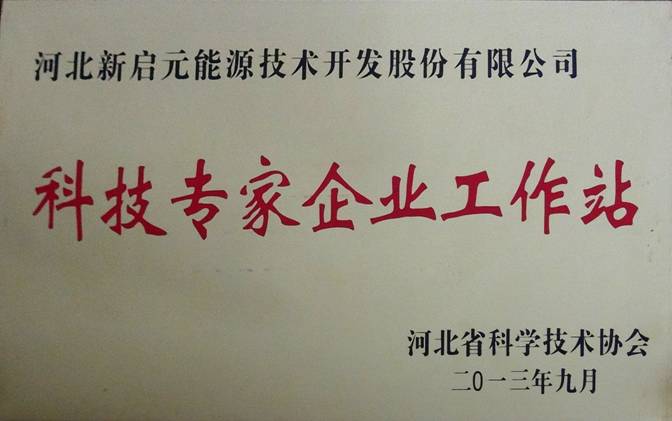 河北新启元能源技术开发股份有限公司
科技专家企业工作站
河北省科学技术协会
二0一三年九月